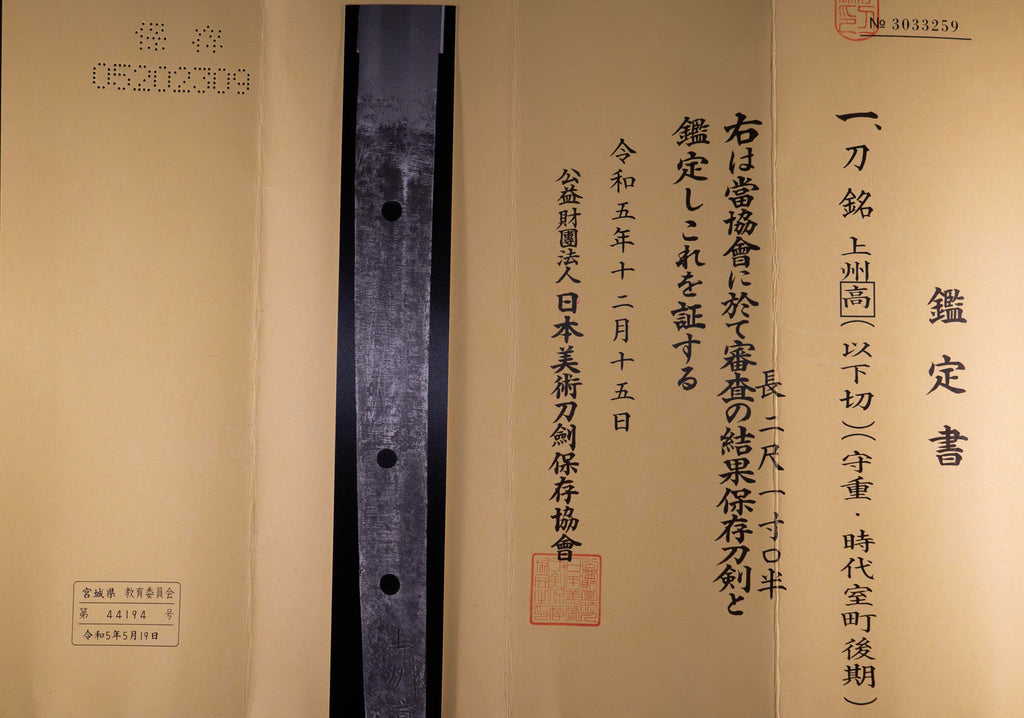 № 3033259
鑑定書
一、刀 銘 上州高(以下切)(守重・時代室町後期)
長二尺一寸〇半
右は當協會に於て審査の結果保存刀剣と
鑑定しこれを証する
令和五年十二月十五日
公益財團法人日本美術刀劍保存協會
上州高
保存
05202309
宮城県 教育委員会
第 44194 号
令和5年5月19日